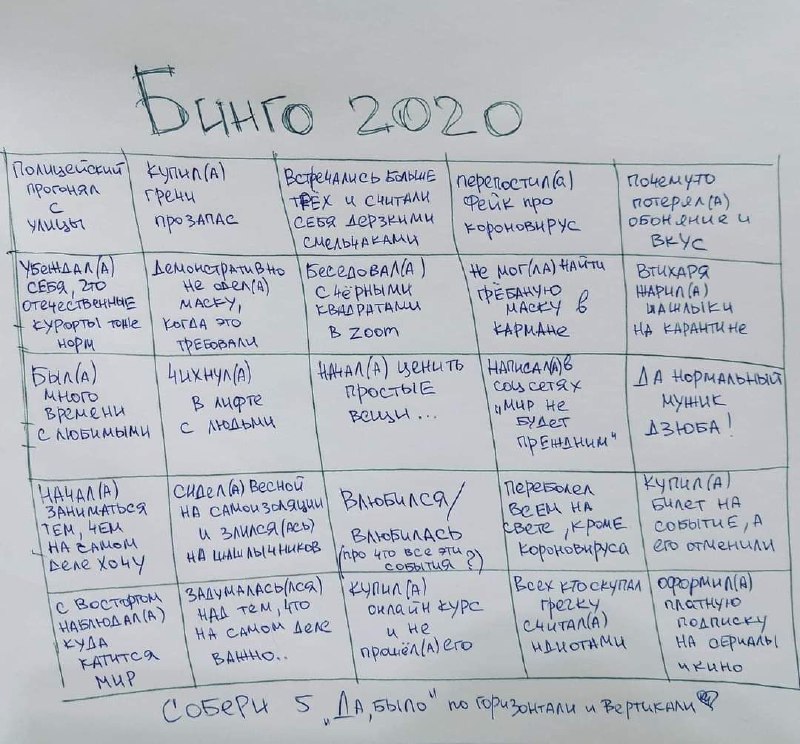 Бинго 2020
Полицейский
прогонял
с
улицы
Купил(а)
гречи
прозапас
Встречались больше
трёх и считали
себя дерзкими
смельчаками
Перепостил(а)
фейк про
короновирус
Почемуто
потерял(а)
обоняние и
вкус
Убеждал(а)
себя, что
отечественные
курорты тоже
норм
Демонстративно
не одел(а)
маску,
когда это
требовали
Беседовал(а)
с чёрными
квадратами
в Zoom
Не мог(ла) найти
грёбаную
маску в
кармане
Втихаря
жарил(а)
шашлыки
на карантине
Был(а)
много
времени
с любимыми
Чихнул(а)
в лифте
с людьми
Начал(а) ценить
простые
вещи...
Написал(а) в
соцсетях
„Мир не
будет
прежним"
Да нормальный
мужик
Дзюба!
Начал(а)
заниматься
тем, чем
на самом
деле хочу
Сидел(а) весной
на самоизоляции
и злился(ась)
на шашлычников
Влюбился/
Влюбилась
(про что все эти
события?)
Переболел
всем на
свете, кроме
короновируса
Купил(а)
билет на
событие, а
его отменили
С восторгом
наблюдал(а)
куда
катится
мир
Задумалась(лся)
над тем, что
на самом деле
важно..
Купил(а)
онлайн курс
и не
прошёл(а) его
Всех кто скупал
гречку
считал(а)
идиотами
Оформил(а)
платную
подписку
на сериалы
и кино
Собери 5 „Да, было" по горизонтали и вертикали